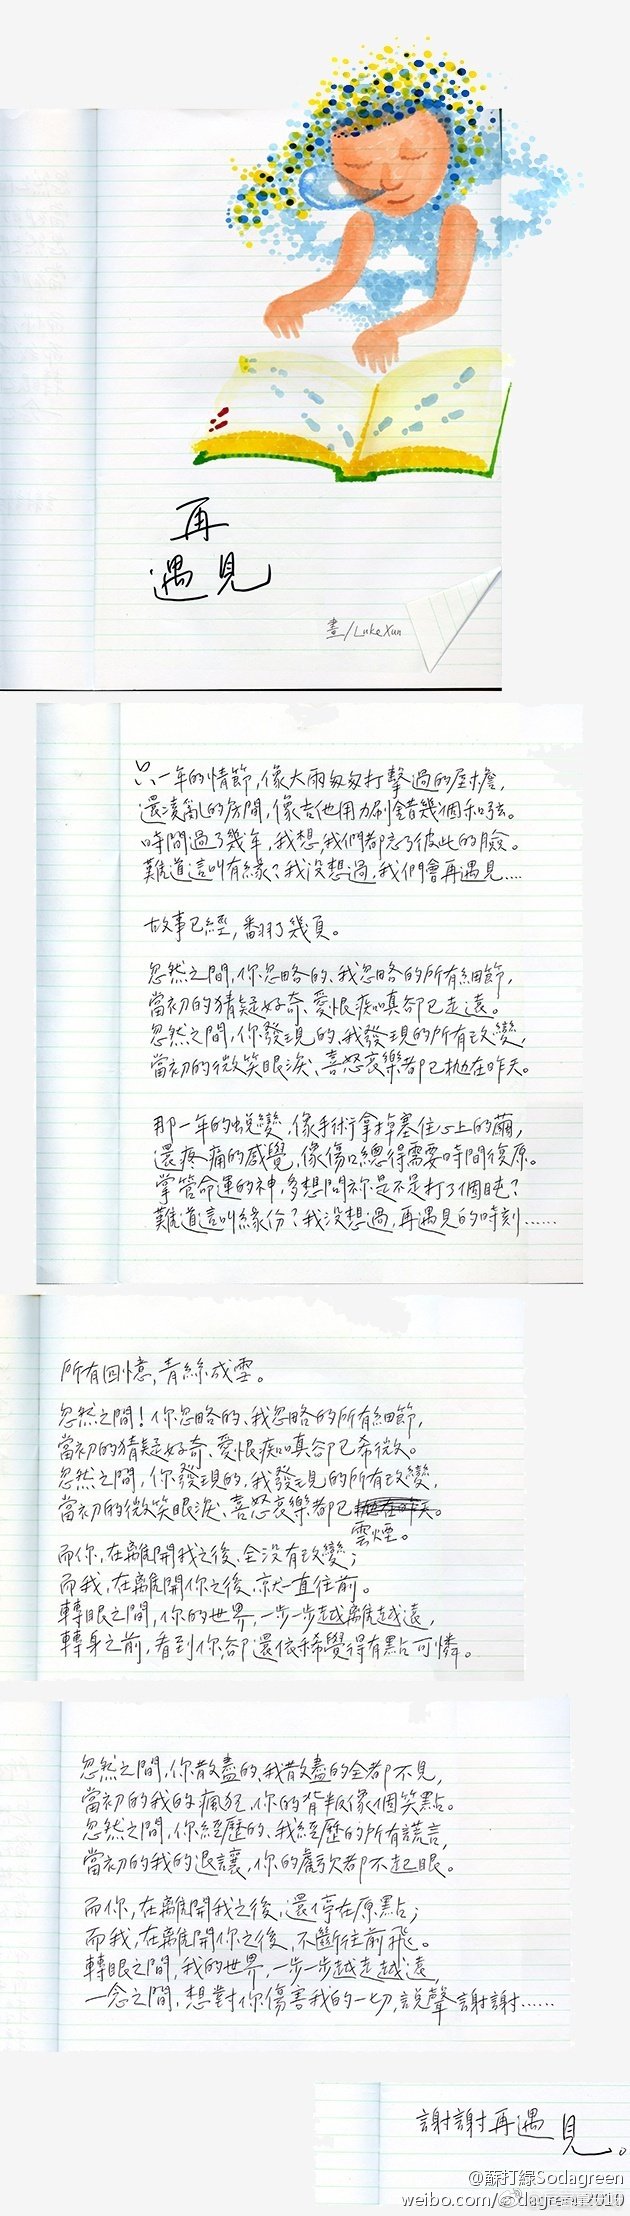 再
遇見
畫/LukeXun
只一年的情節，像大雨匆匆打擊過的屋檐，
還凌亂的房間，像吉他用力刷錯幾個和弦。
時間過了幾年，我想，我們都忘了彼此的臉。
難道這叫有緣？我沒想過，我們會再遇見....
故事已經，翻了幾頁。
忽然之間，你忽略的、我忽略的所有細節，
當初的猜疑好奇、愛恨痴嗔卻已走遠。
忽然之間，你發現的、我發現的所有改變，
當初的微笑眼淚、喜怒哀樂都已拋在昨天。
那一年的蛻變，像手術拿掉塞住心上的繭，
還疼痛的感覺，像傷口總得需要時間復原。
掌管命運的神，多想問祢是不是打了個盹？
難道這叫緣份？我沒想過，再遇見的時刻......
所有回憶，青絲成雪。
忽然之間！你忽略的、我忽略的所有細節，
當初的猜疑好奇、愛恨痴嗔卻已稀微。
忽然之間，你發現的，我發現的所有改變，
當初的微笑眼淚、喜怒哀樂都已拋在昨天。
雲煙。
而你，在離開我之後，全沒有改變；
而我，在離開你之後，就一直往前。
轉眼之間，你的世界，一步一步越離越遠，
轉身之前，看到你，卻還依稀覺得有點可憐。
忽然之間，你散盡的、我散盡的全都不見，
當初的我的瘋狂，你的背叛像個笑點。
忽然之間，你經歷的、我經歷的所有謊言，
當初的我的退讓，你的虧欠都不起眼。
而你，在離開我之後，還停在原點；
而我，在離開你之後，不斷往前飛。
轉眼之間，我的世界，一步一步越走越遠，
一念之間，想對你傷害我的一切，說聲謝謝......
謝謝再遇見。
@蘇打綠Sodagreen
weibo.com/sodagreen2010